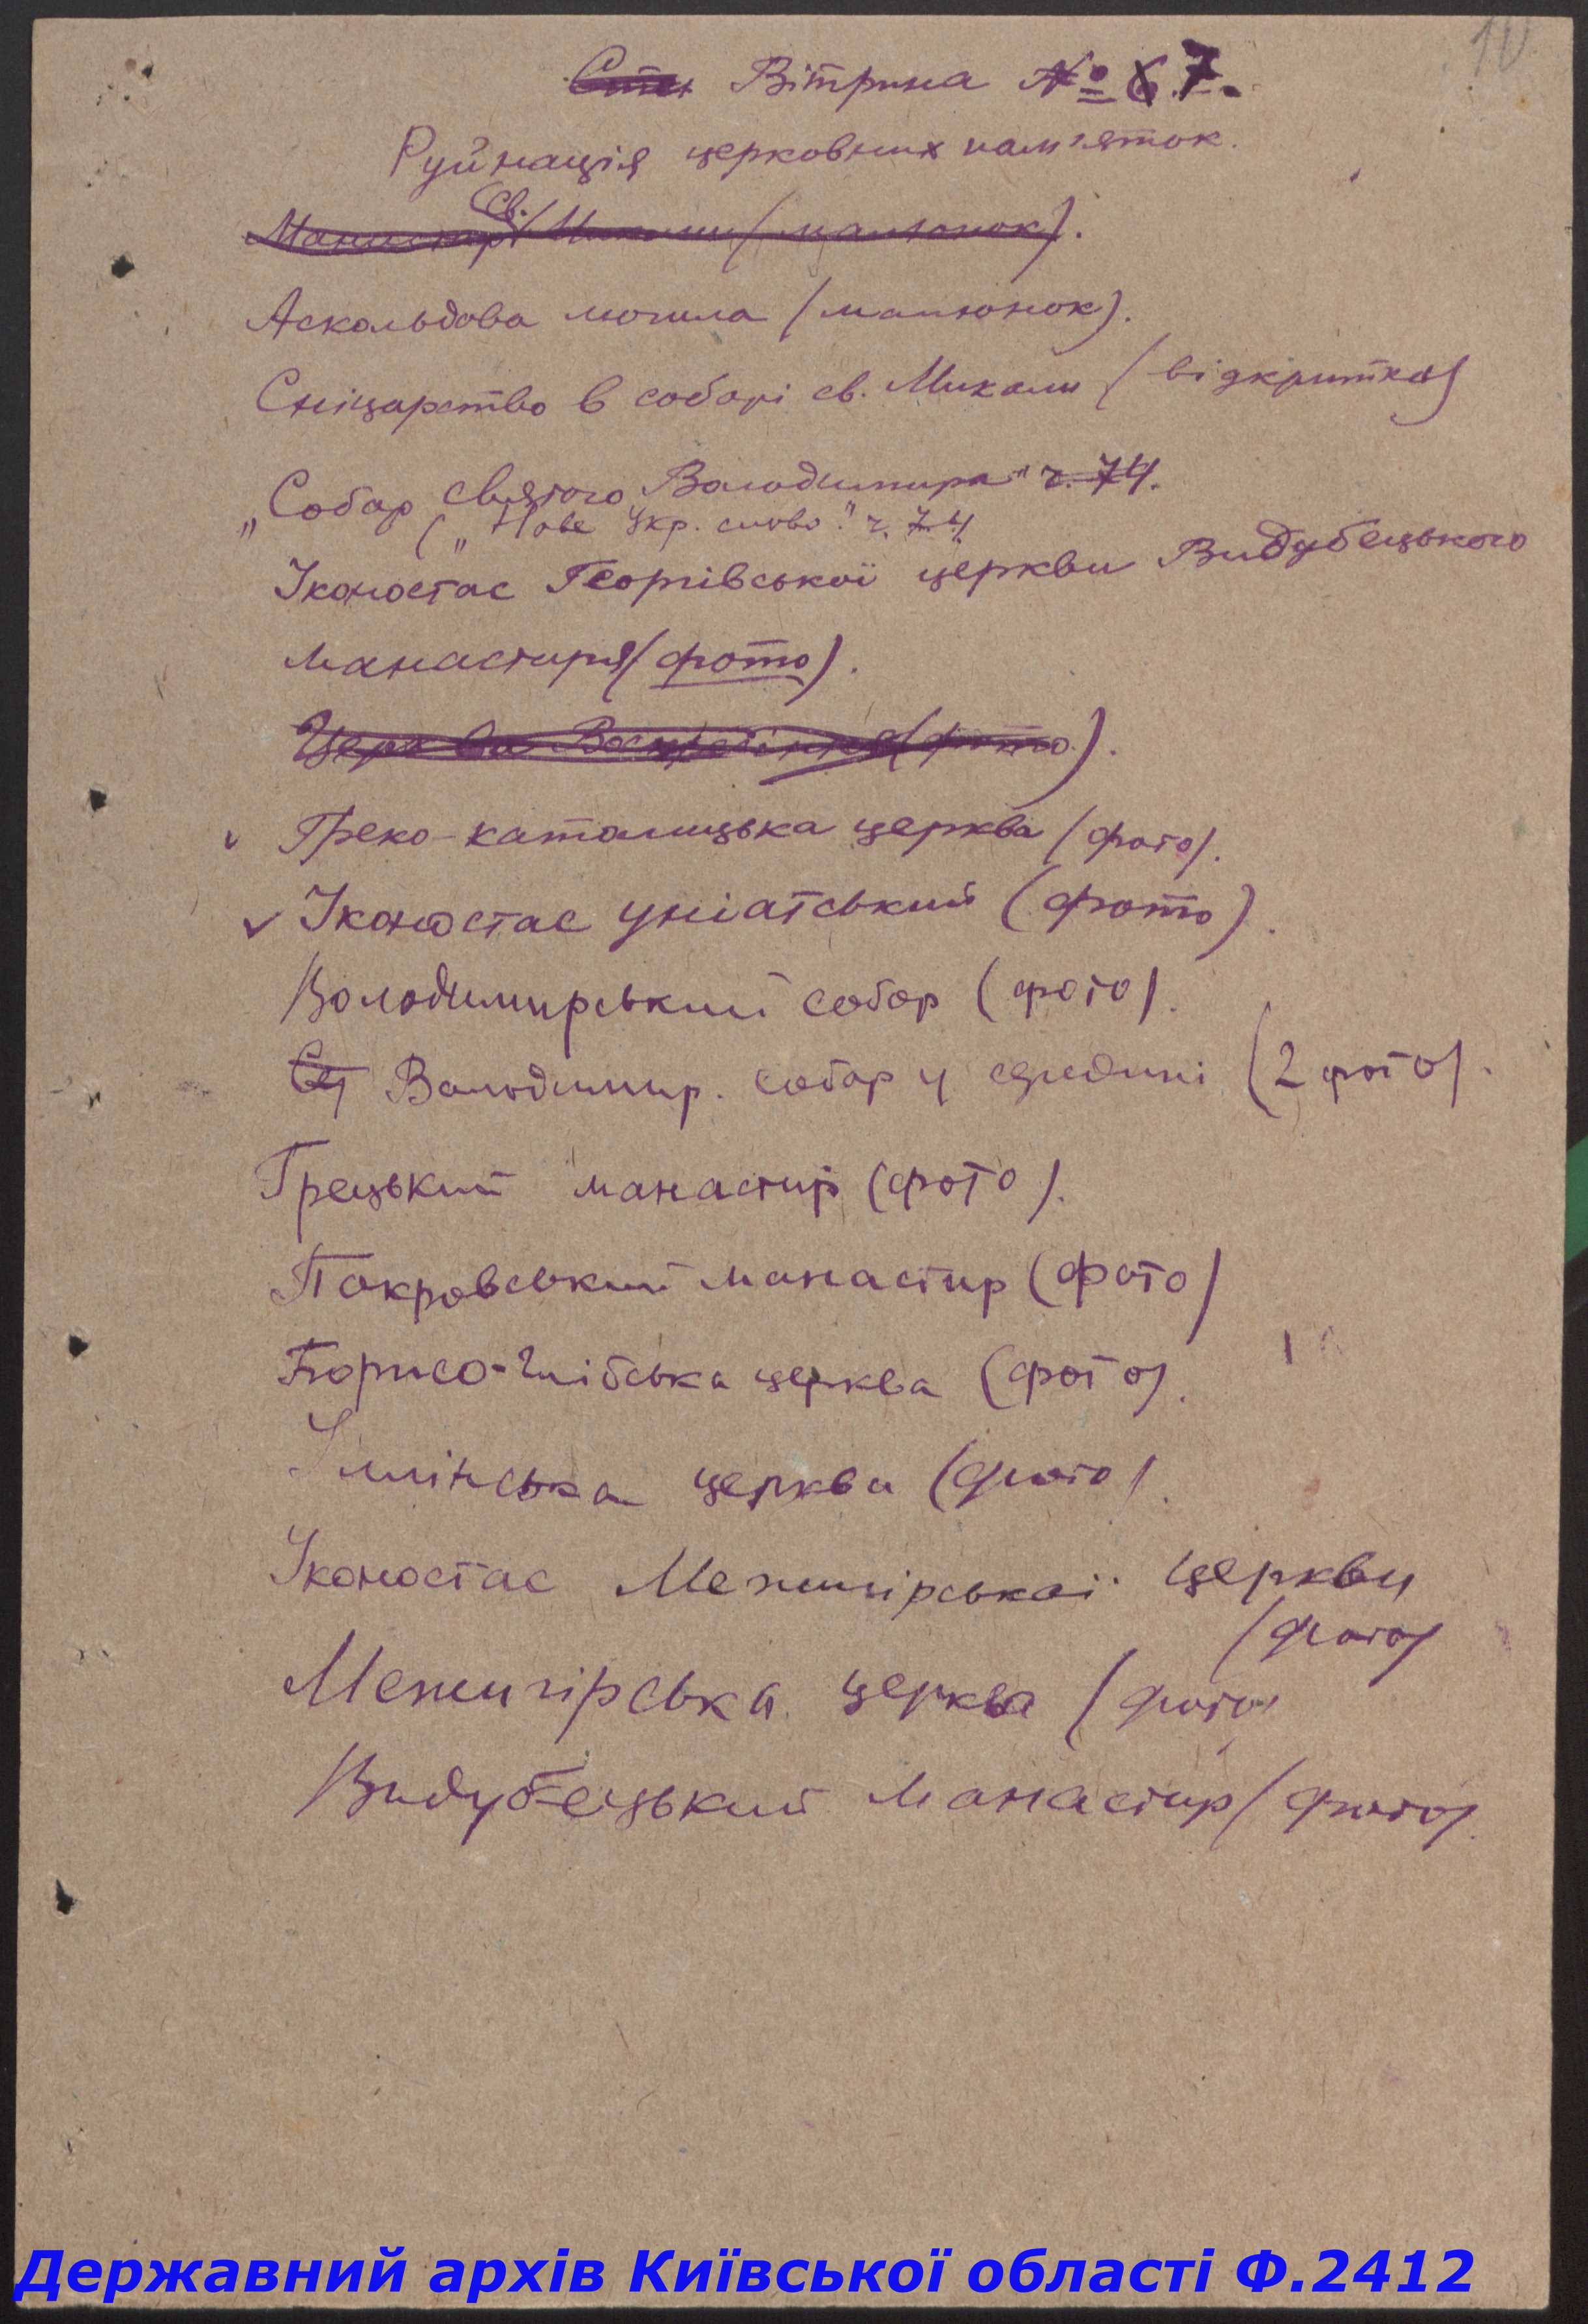 10
Стен Вітрина № 6 7.
Руйнація церковних пам'яток.
Св.
Манастир Миколи (малюнок).
Аскольдова могила (малюнок).
Сніцарство в соборі св. Миколи (відкритка)
„Собор святого Володимира" ч. 74.
(„Нове Укр. слово." ч. 74
Іконостас Георгівської церкви Видубецького
манастиря (фото).
Церква Воскресіння (фото).
Греко-католицька церква (фото).
Іконостас уніатський (фото).
Володимирський собор (фото).
Володимир. собор у середині (2 фото).
Грецький манастир (фото).
Покровський манастир (фото)
Борисо-Глібська церква (фото).
Іллінська церква (фото).
Іконостас Межигірської церкви
(фото)
Межигірська церква (фото)
Видубецький манастир (фото).
Державний архів Київської області Ф.2412